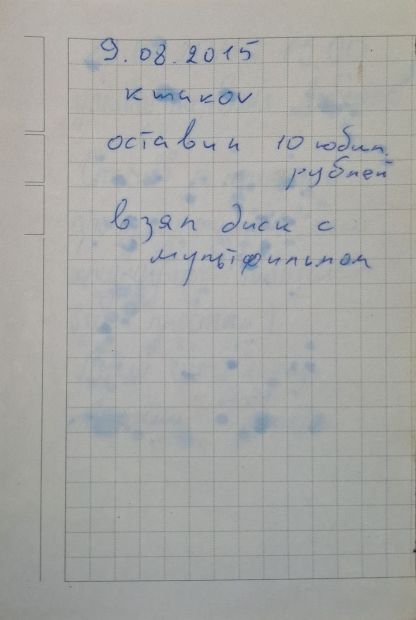 9.08.2015
кшиков
оставил 10 юбил.
рублей
взял диск с
мультфильмом